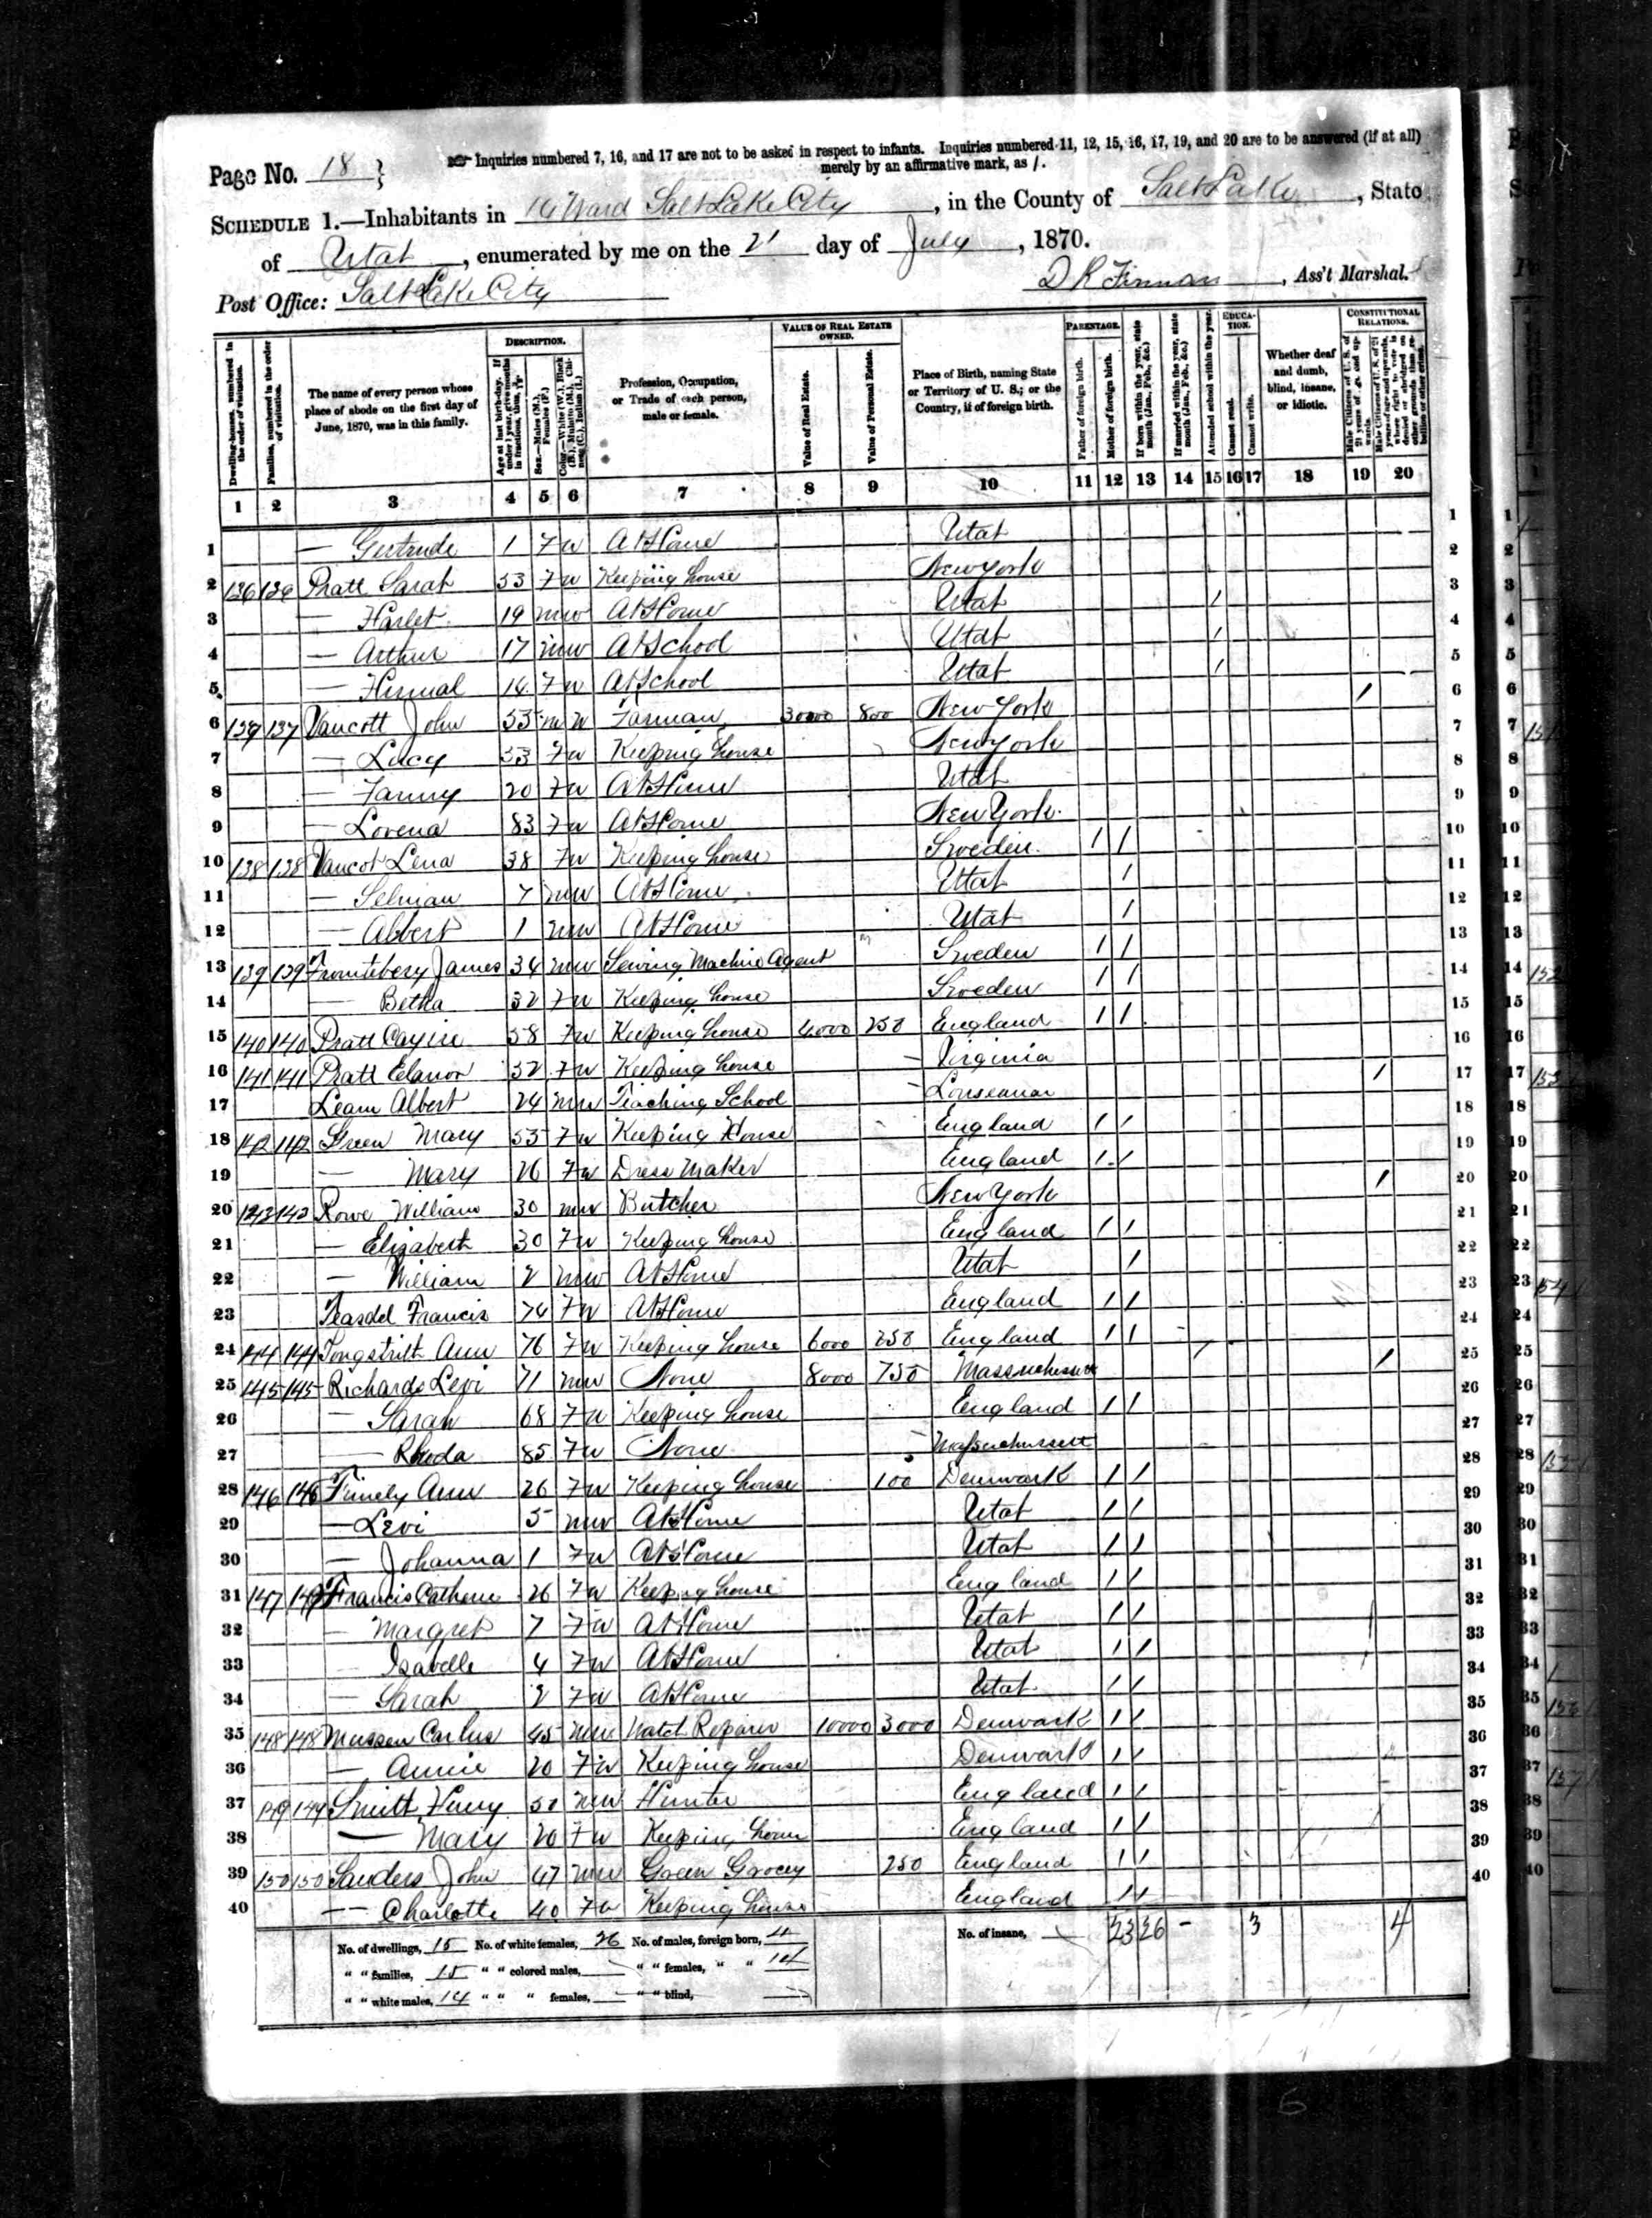 Page No. 18 } Inquiries numbered 7, 16, and 17 are not to be asked in respect to infants. Inquiries numbered 11, 12, 15, 16, 17, 19, and 20 are to be answered (if at all)
merely by an affirmative mark, as /.
SCHEDULE 1.—Inhabitants in 14 Ward Salt Lake City, in the County of Salt Lake, State
of Utah, enumerated by me on the 21 day of July, 1870.
Post Office: Salt Lake City D R Firman, Ass't Marshal.
Dwelling-houses, numbered in the order of visitation. Families, numbered in the order of visitation. The name of every person whose place of abode on the first day of June, 1870, was in this family. DESCRIPTION. Age at last birth-day. Sex.—Males (M.), Females (F.) Profession, Occupation, or Trade of each person, male or female. VALUE OF REAL ESTATE OWNED. Value of Real Estate. Value of Personal Estate. Place of Birth, naming State or Territory of U. S.; or the Country, if of foreign birth. PARENTAGE. Father of foreign birth. Mother of foreign birth. If born within the year, state month (Jan., Feb., &c.) If married within the year, state month (Jan., Feb., &c.) Attended school within the year. EDUCATION. Cannot read. Cannot write. Whether deaf and dumb, blind, insane, or idiotic. CONSTITUTIONAL RELATIONS.
1 2 3 4 5 6 7 8 9 10 11 12 13 14 15 16 17 18 19 20
1 — Gertrude 1 F W At Home Utah 1
2 136 136 Pratt Sarah 53 F W Keeping house New York 2
3 — Harlet 19 M W At Home Utah / 3
4 — Arthur 17 M W At School Utah / 4
5 — Hermal 14 F W At School Utah / 5
6 137 137 Vancott John 55 M W Farman 30000 800 New York / 6
7 — Lucy 53 F W Keeping house New York 7
8 — Fanny 20 F W At Home Utah 8
9 — Lovena 83 F W At Home New York 9
10 138 138 Vancot Lena 38 F W Keeping house Sweden / / 10
11 — Selman 7 M W At Home Utah / 11
12 — Abbert 1 M W At Home Utah / 12
13 139 139 James 34 M W Sewing Machine Agent Sweden / / 13
14 — Betha 32 F W Keeping house Sweden / / 14
15 140 140 Pratt 58 F W Keeping house 4000 250 England / / 15
16 141 141 Pratt Elanor 52 F W Keeping house Virginia 16
17 Leam Albert 24 M W Teaching School Louseanar / 17
18 142 142 Green Mary 55 F W Keeping House England / / 18
19 — Mary 26 F W Dress Maker England / / 19
20 143 143 Rowe William 30 M W Butcher New York / 20
21 — Elizabeth 30 F W Keeping house England / / 21
22 — William 2 M W At Home Utah / 22
23 Teasdel Francis 74 F W At Home England / / 23
24 144 144 Ann 76 F W Keeping house 6000 250 England / / 24
25 145 145 Richards Levi 71 M W None 8000 750 Massachusett / 25
26 — Sarah 68 F W Keeping house England / / 26
27 — Rhoda 85 F W None Massachussett 27
28 146 146 Ann 26 F W Keeping house 100 Denmark / / 28
29 — Levi 5 M W At Home Utah / / 29
30 — Johanna 1 F W At Home Utah / / 30
31 147 147 Francis Cathern 26 F W Keeping house England / / 31
32 — Margret 7 F W At Home Utah / / 32
33 — Isabelle 4 F W At Home Utah / / 33
34 — Sarah 2 F W At Home Utah / / 34
35 148 148 Carlus 45 M W Watch Reparer 10000 3000 Denmark / / 35
36 — Annie 20 F W Keeping house Denmark / / 36
37 149 149 Smith Henry 50 M W Hunter England / / 37
38 — Mary 20 F W Keeping house England / / 38
39 150 150 Sanders John 47 M W Green Grocey 250 England / / 39
40 — Charlotte 40 F W Keeping house England / / 40
No. of dwellings, 15 No. of white females, 26 No. of males, foreign born, 4 No. of insane, 23 26 - 3 4
" " families, 15 " " colored males, " " females, " " 14
" " white males, 14 " " " females, " " blind,